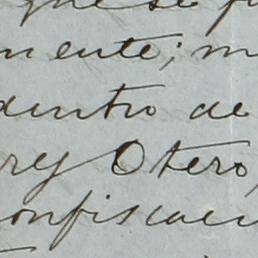 que se p
mente; m
dentro de
rey Otero,
onfiscaci